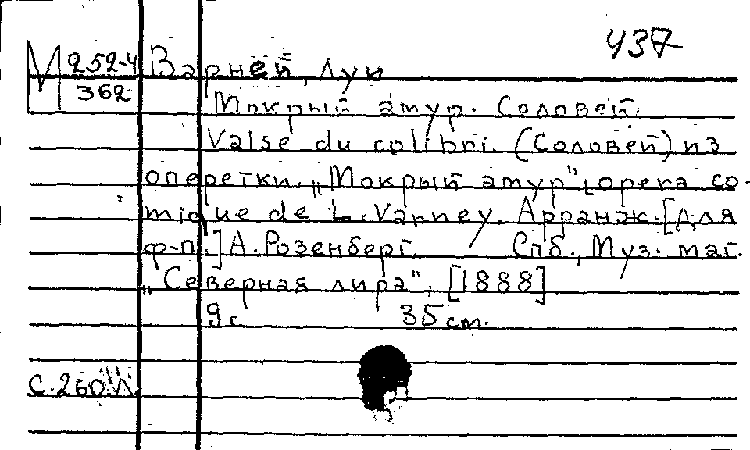 437
М 252-4 Варней, Луи
362
Мокрый амур. Соловей.
Valse du colibri. (Соловей) из
оперетки "Мокрый амур", opera co-
mique de L. Varney. Арранж. [для
ф-п.] А. Розенберг. Спб., Муз. маг.
"Северная лира", [1888]
9 с. 35 см.
С. 260